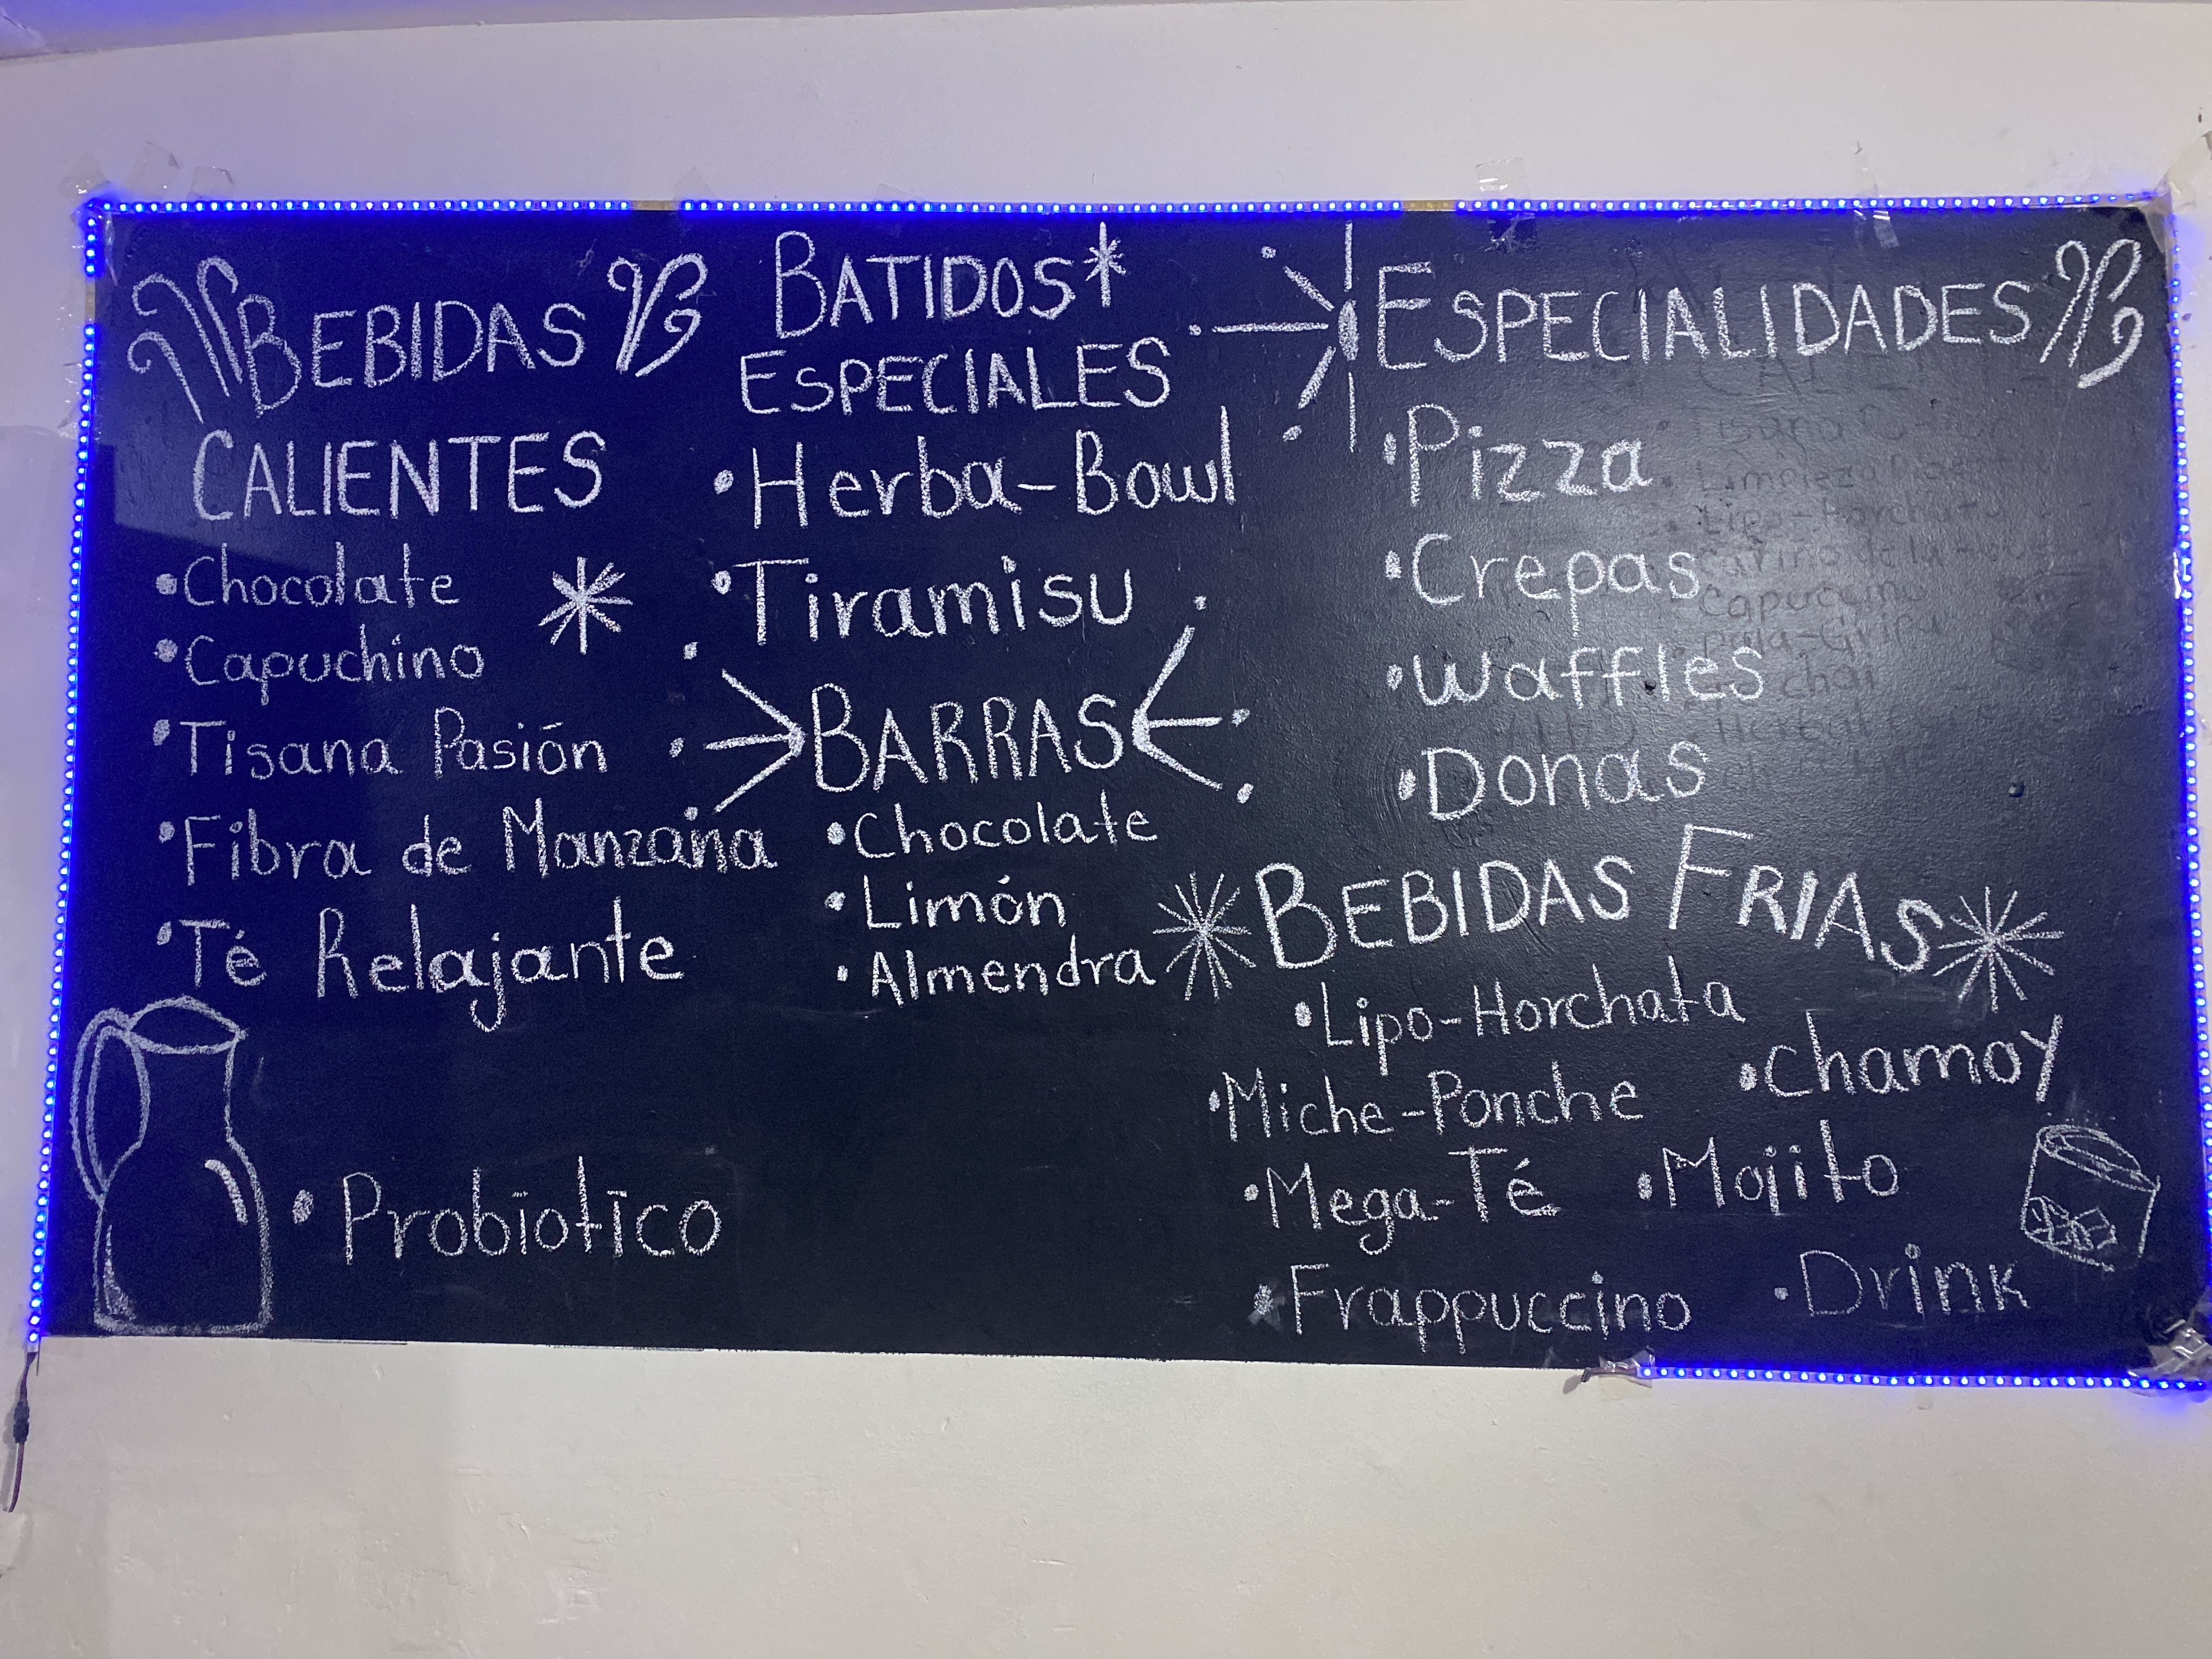 BEBIDAS
CALIENTES
•Chocolate
•Capuchino
•Tisana Pasión
•Fibra de Manzana
•Té Relajante
•Probiotico
BATIDOS*
ESPECIALES
•Herba-Bowl
•Tiramisu
BARRAS
•Chocolate
•Limón
•Almendra
ESPECIALIDADES
•Pizza
•Crepas
•Waffles
•Donas
BEBIDAS FRIAS
•Lipo-Horchata
•Chamoy
•Miche-Ponche
•Mega-Té •Mojito
•Frappuccino •Drink